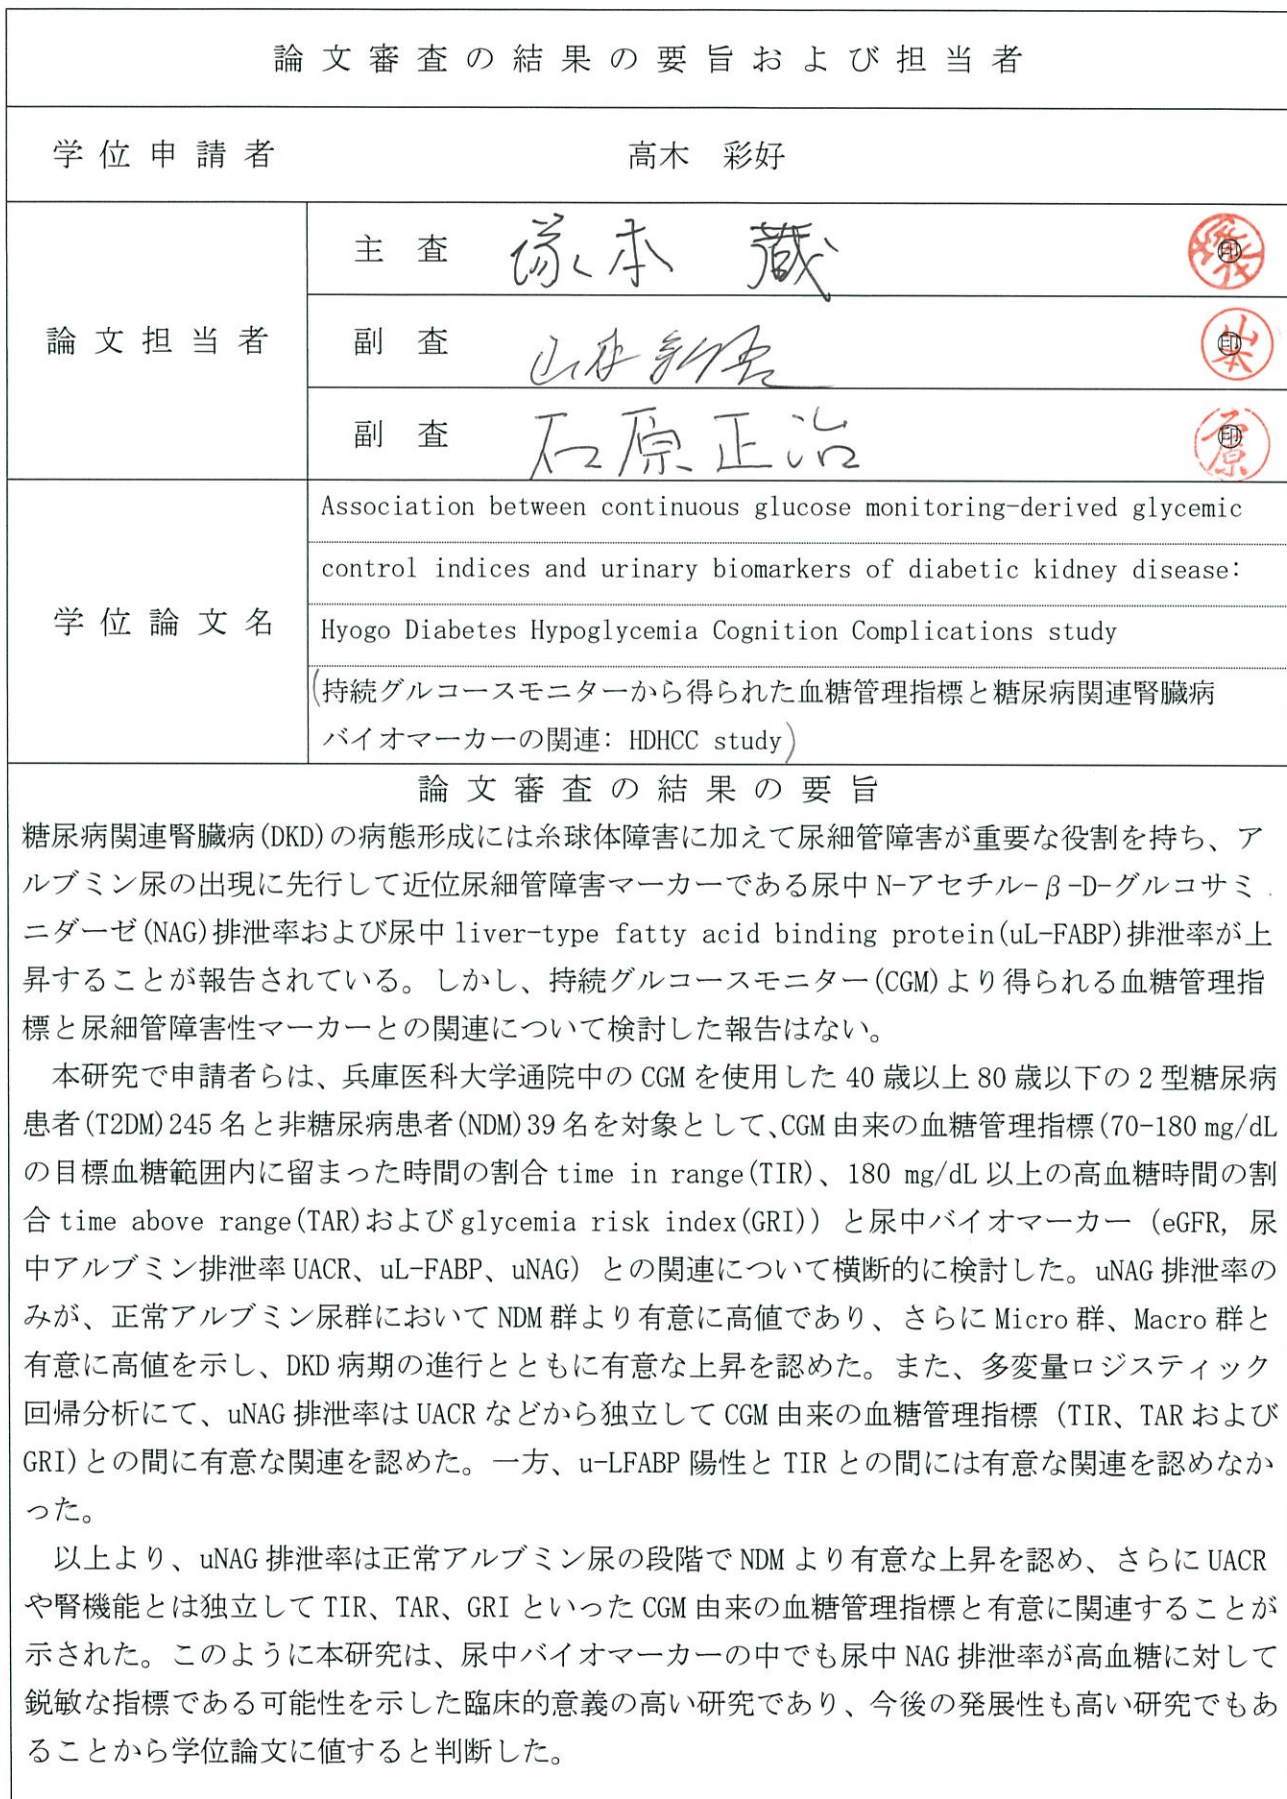 論文審査の結果の要旨および担当者
学位申請者
高木 彩好
論文担当者
主 査 塚本 蔵 印
副 査 山本新吾 印
副 査 石原正治 印
学位論文名
Association between continuous glucose monitoring-derived glycemic
control indices and urinary biomarkers of diabetic kidney disease:
Hyogo Diabetes Hypoglycemia Cognition Complications study
(持続グルコースモニターから得られた血糖管理指標と糖尿病関連腎臓病
バイオマーカーの関連: HDHCC study)
論文審査の結果の要旨
糖尿病関連腎臓病(DKD)の病態形成には糸球体障害に加えて尿細管障害が重要な役割を持ち、ア
ルブミン尿の出現に先行して近位尿細管障害マーカーである尿中 N-アセチル-β-D-グルコサミ
ニダーゼ(NAG)排泄率および尿中 liver-type fatty acid binding protein(uL-FABP)排泄率が上
昇することが報告されている。しかし、持続グルコースモニター(CGM)より得られる血糖管理指
標と尿細管障害性マーカーとの関連について検討した報告はない。
本研究で申請者らは、兵庫医科大学通院中の CGM を使用した 40 歳以上 80 歳以下の 2 型糖尿病
患者(T2DM)245 名と非糖尿病患者(NDM)39 名を対象として、CGM 由来の血糖管理指標(70-180 mg/dL
の目標血糖範囲内に留まった時間の割合 time in range(TIR)、180 mg/dL 以上の高血糖時間の割
合 time above range(TAR)および glycemia risk index(GRI)) と尿中バイオマーカー (eGFR, 尿
中アルブミン排泄率 UACR、uL-FABP、uNAG) との関連について横断的に検討した。uNAG 排泄率の
みが、正常アルブミン尿群において NDM 群より有意に高値であり、さらに Micro 群、Macro 群と
有意に高値を示し、DKD 病期の進行とともに有意な上昇を認めた。また、多変量ロジスティック
回帰分析にて、uNAG 排泄率は UACR などから独立して CGM 由来の血糖管理指標 (TIR、TAR および
GRI)との間に有意な関連を認めた。一方、u-LFABP 陽性と TIR との間には有意な関連を認めなか
った。
以上より、uNAG 排泄率は正常アルブミン尿の段階で NDM より有意な上昇を認め、さらに UACR
や腎機能とは独立して TIR、TAR、GRI といった CGM 由来の血糖管理指標と有意に関連することが
示された。このように本研究は、尿中バイオマーカーの中でも尿中 NAG 排泄率が高血糖に対して
鋭敏な指標である可能性を示した臨床的意義の高い研究であり、今後の発展性も高い研究でもあ
ることから学位論文に値すると判断した。